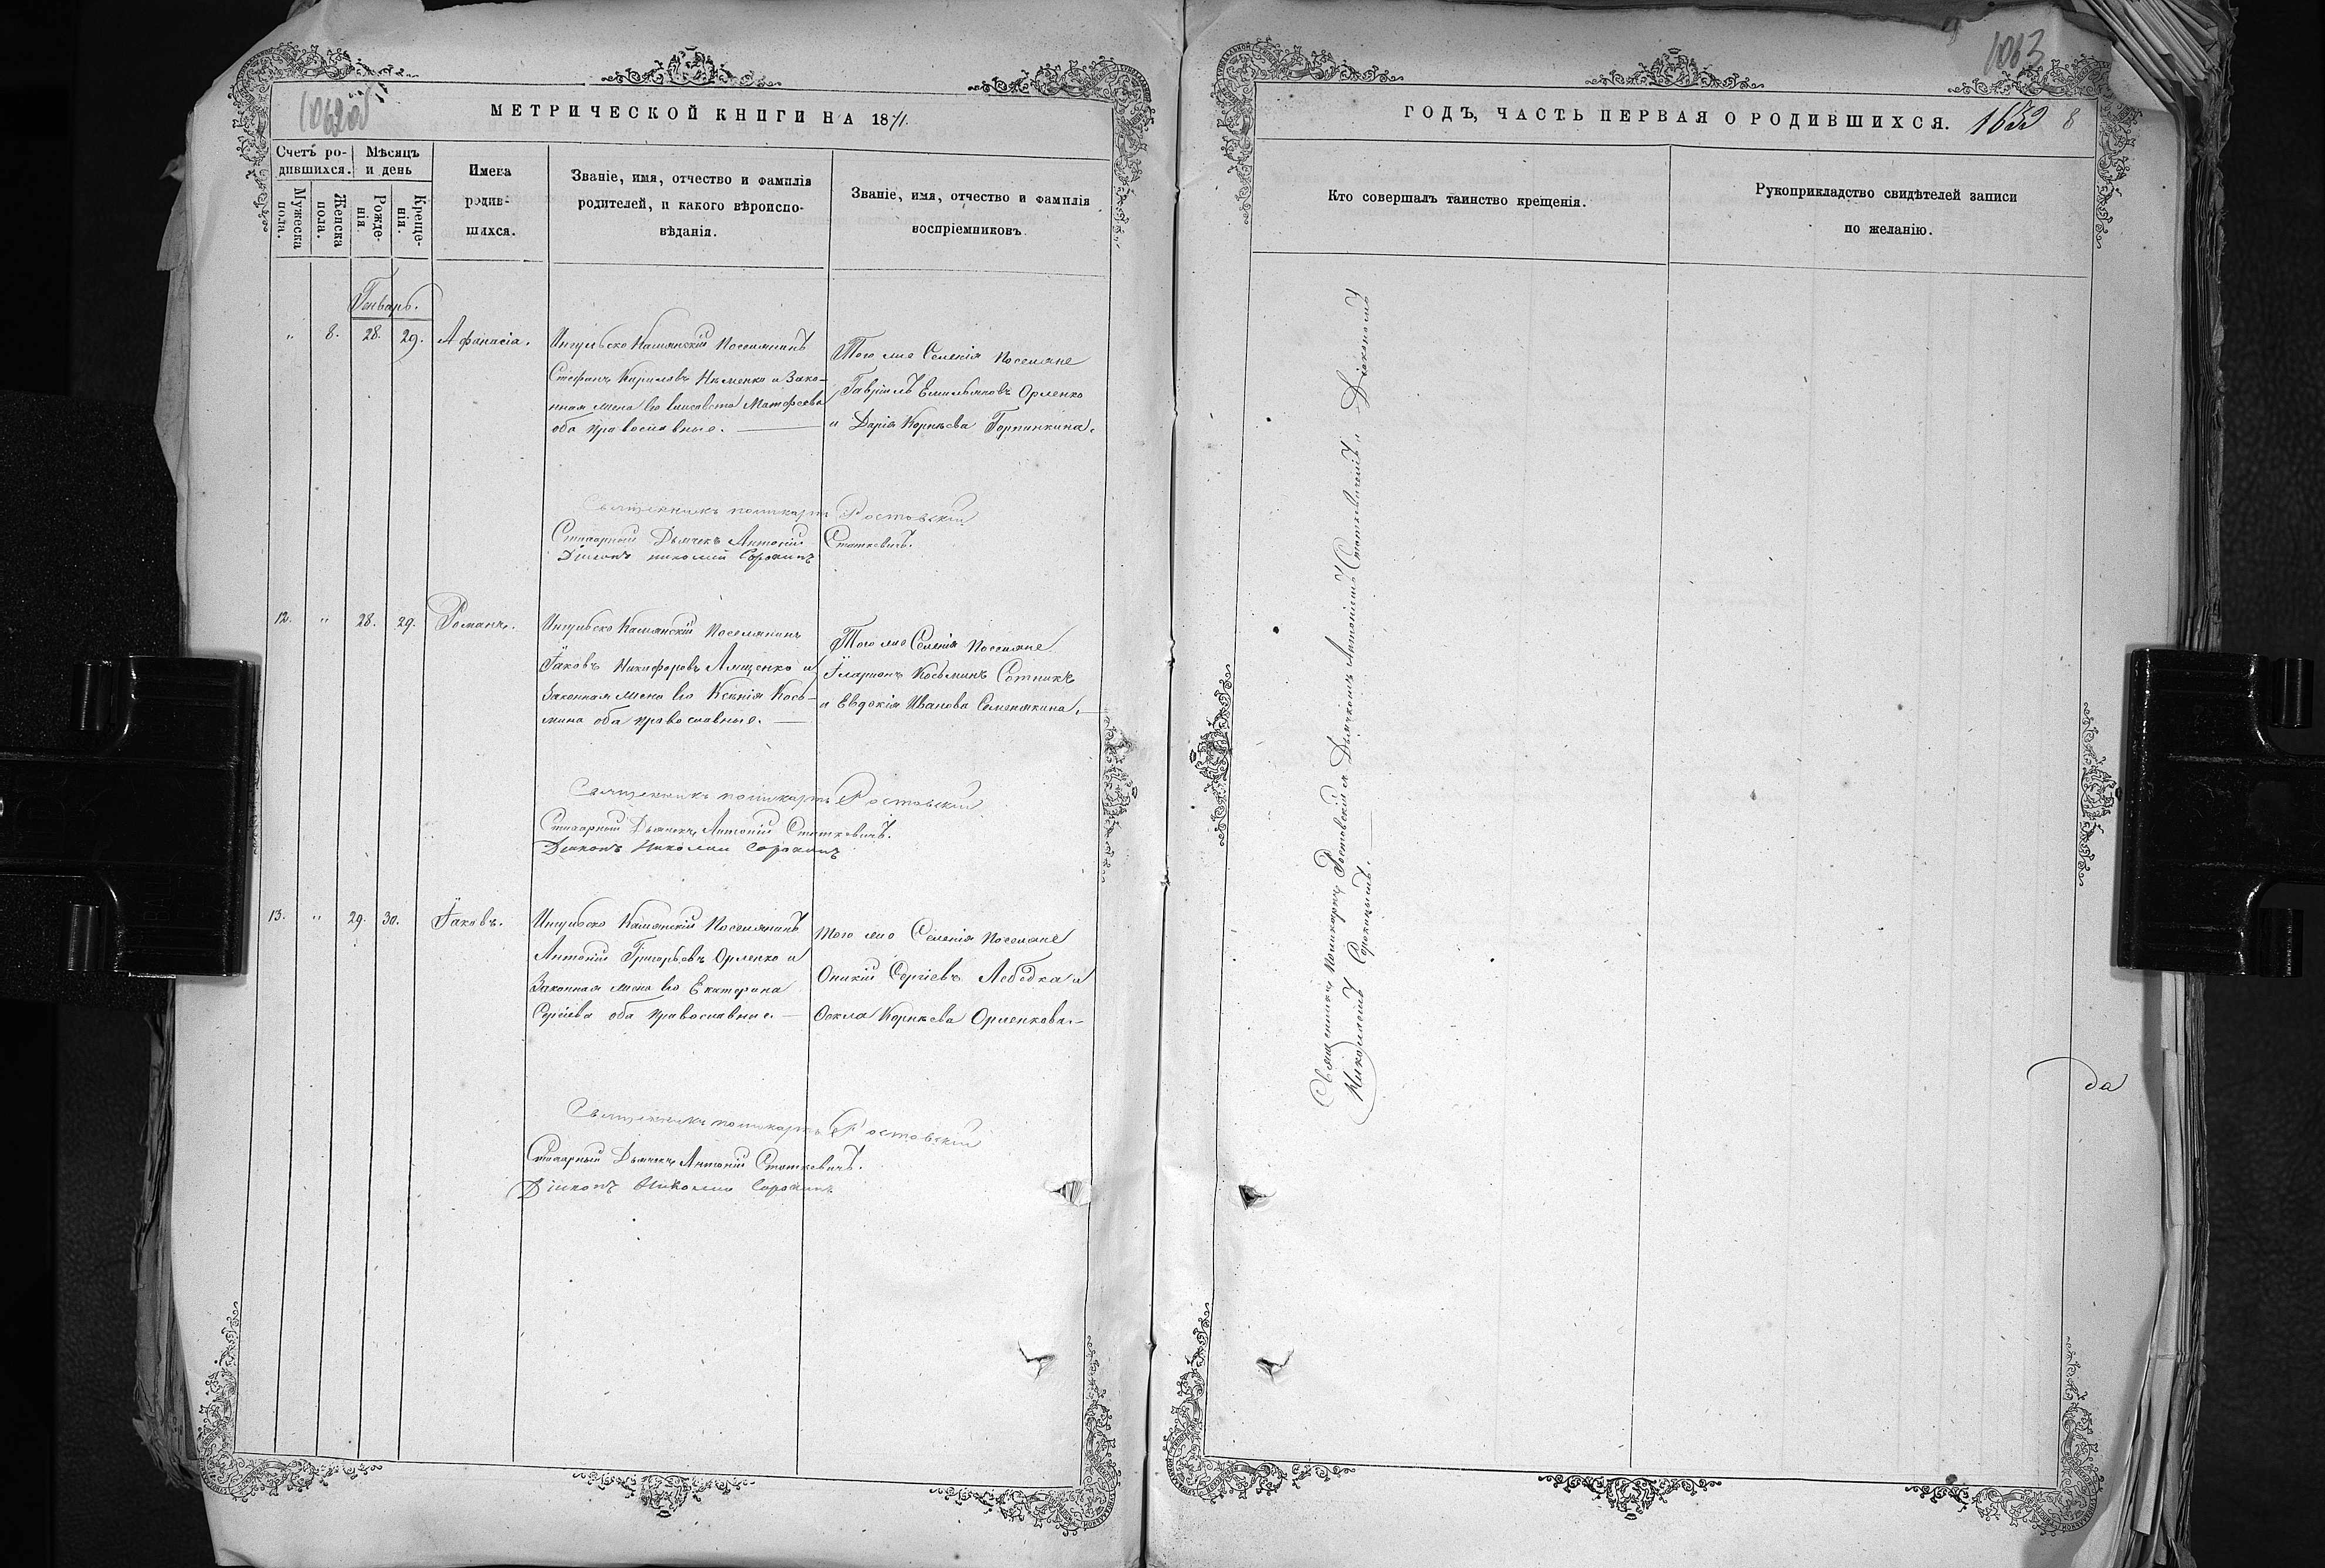 1062об
МЕТРИЧЕСКОЙ КНИГИ НА 1871.
Счетъ ро-
дившихся.
Мѣсяцъ
и день
Мужеска
пола.
Женска
пола.
Рожде-
нія.
Креще-
нія.
Имена
родив-
шихся.
Званіе, имя, отчество и фамилія
родителей, и какого вѣроиспо-
вѣданія.
Званіе, имя, отчество и фамилія
воспріемниковъ.
Генварь.
" 8. 28. 29. Афанасія.
Ингульско Камянскій Поселянинъ
Стефанъ Кириловъ Нѣменко и Зако-
нная жена его Елисавета Матфеева
оба православные.
Того же Селенія Поселяне
Гавріилъ Емильяновъ Орленко
и Дарія Корнѣева Горпинкина.
Священникъ Поликарпъ Ростовскій
Стихарный Дьячекъ Антоній Статкевичъ.
Діаконъ Николай Сорокинъ
12. " 28. 29. Романъ.
Ингульско Камянскій Поселянинъ
Іаковъ Никифоровъ Лященко и
Законная жена его Ксенія Кось-
мина оба православные.
Того же Селенія Поселяне
Иларионъ Косьминъ Сотникъ
и Евдокія Иванова Семенякина.
Священникъ Поликарпъ Ростовскій
Стихарный Дьячекъ Антоній Статкевичъ.
Діаконъ Николай Сорокинъ
13. " 29. 30. Іаковъ.
Ингульско Камянскій Поселянинъ
Антоній Григорьевъ Орленко и
Законная жена его Екатерина
Сергіева оба православные.
Того же Селенія Поселяне
Оникій Сергіевъ Лебедка и
Фекла Корнѣева Орленкова.
Священникъ Поликарпъ Ростовскій
Стихарный Дьячекъ Антоній Статкевичъ.
Діаконъ Николай Сорокинъ
1063
ГОДЪ, ЧАСТЬ ПЕРВАЯ О РОДИВШИХСЯ.
8
Кто совершалъ таинство крещенія.
Рукоприкладство свидѣтелей записи
по желанію.
Священникъ Поликарпъ Ростовскій съ Дьячкомъ Антоніемъ Статкевичемъ и Діакономъ
Николаемъ Сорокинымъ.
да